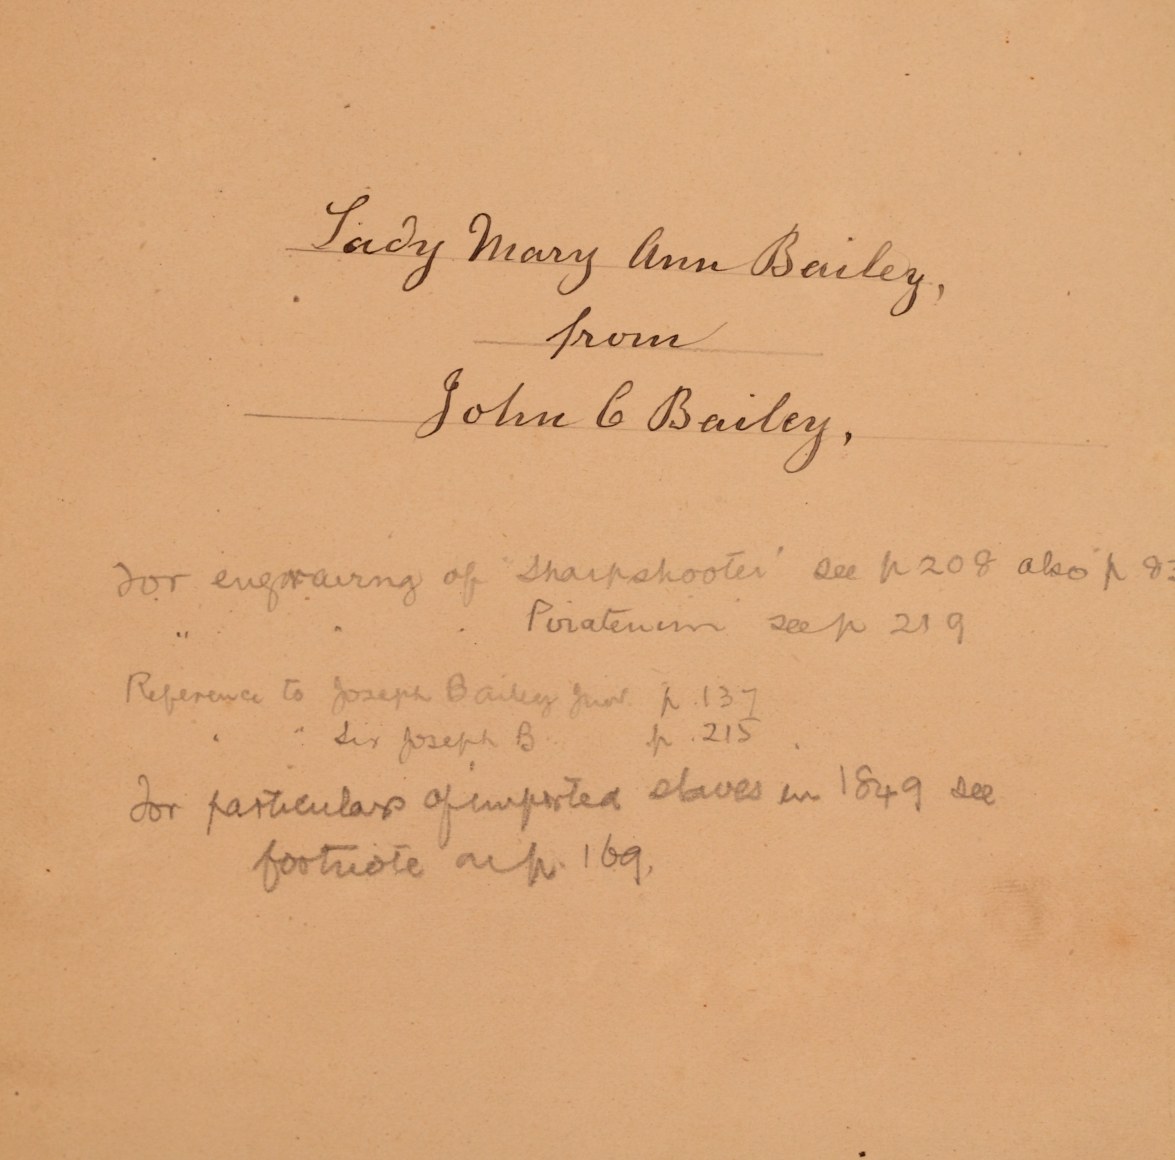 Lady Mary Ann Bailey,
from
John C Bailey,
For engraving of 'Sharpshooter' see p 208 also p 83
" " " Piratenim see p 219
Reference to Joseph Bailey Junr. p. 137
" " Sir Joseph B p. 215
For particulars of imported slaves in 1849 see
footnote on p. 169.